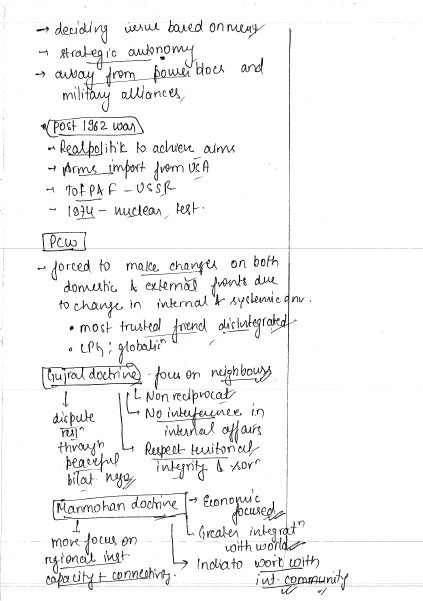 → deciding issue based on merit
→ strategic autonomy
→ away from power blocs and
military alliances
Post 1962 war
- Realpolitik to achieve aims
- Arms import from USA
- TOFPAF - USSR
- 1974 - nuclear test.
PCW
- forced to make changes on both
domestic & external fronts due
to change in internal & systemic env.
• most trusted friend disintegrated
• LPG : globalisn
Gujral doctrine - focus on neighbours
Non reciprocat
No interference in
internal affairs
Respect territorial
integrity & sovn
dispute
resn
through
peaceful
bilat nego
Manmohan doctrine → Economic
focused
Greater integratn
with world
India to work with
int. community
more focus on
regional inst
capacity + connectivity.